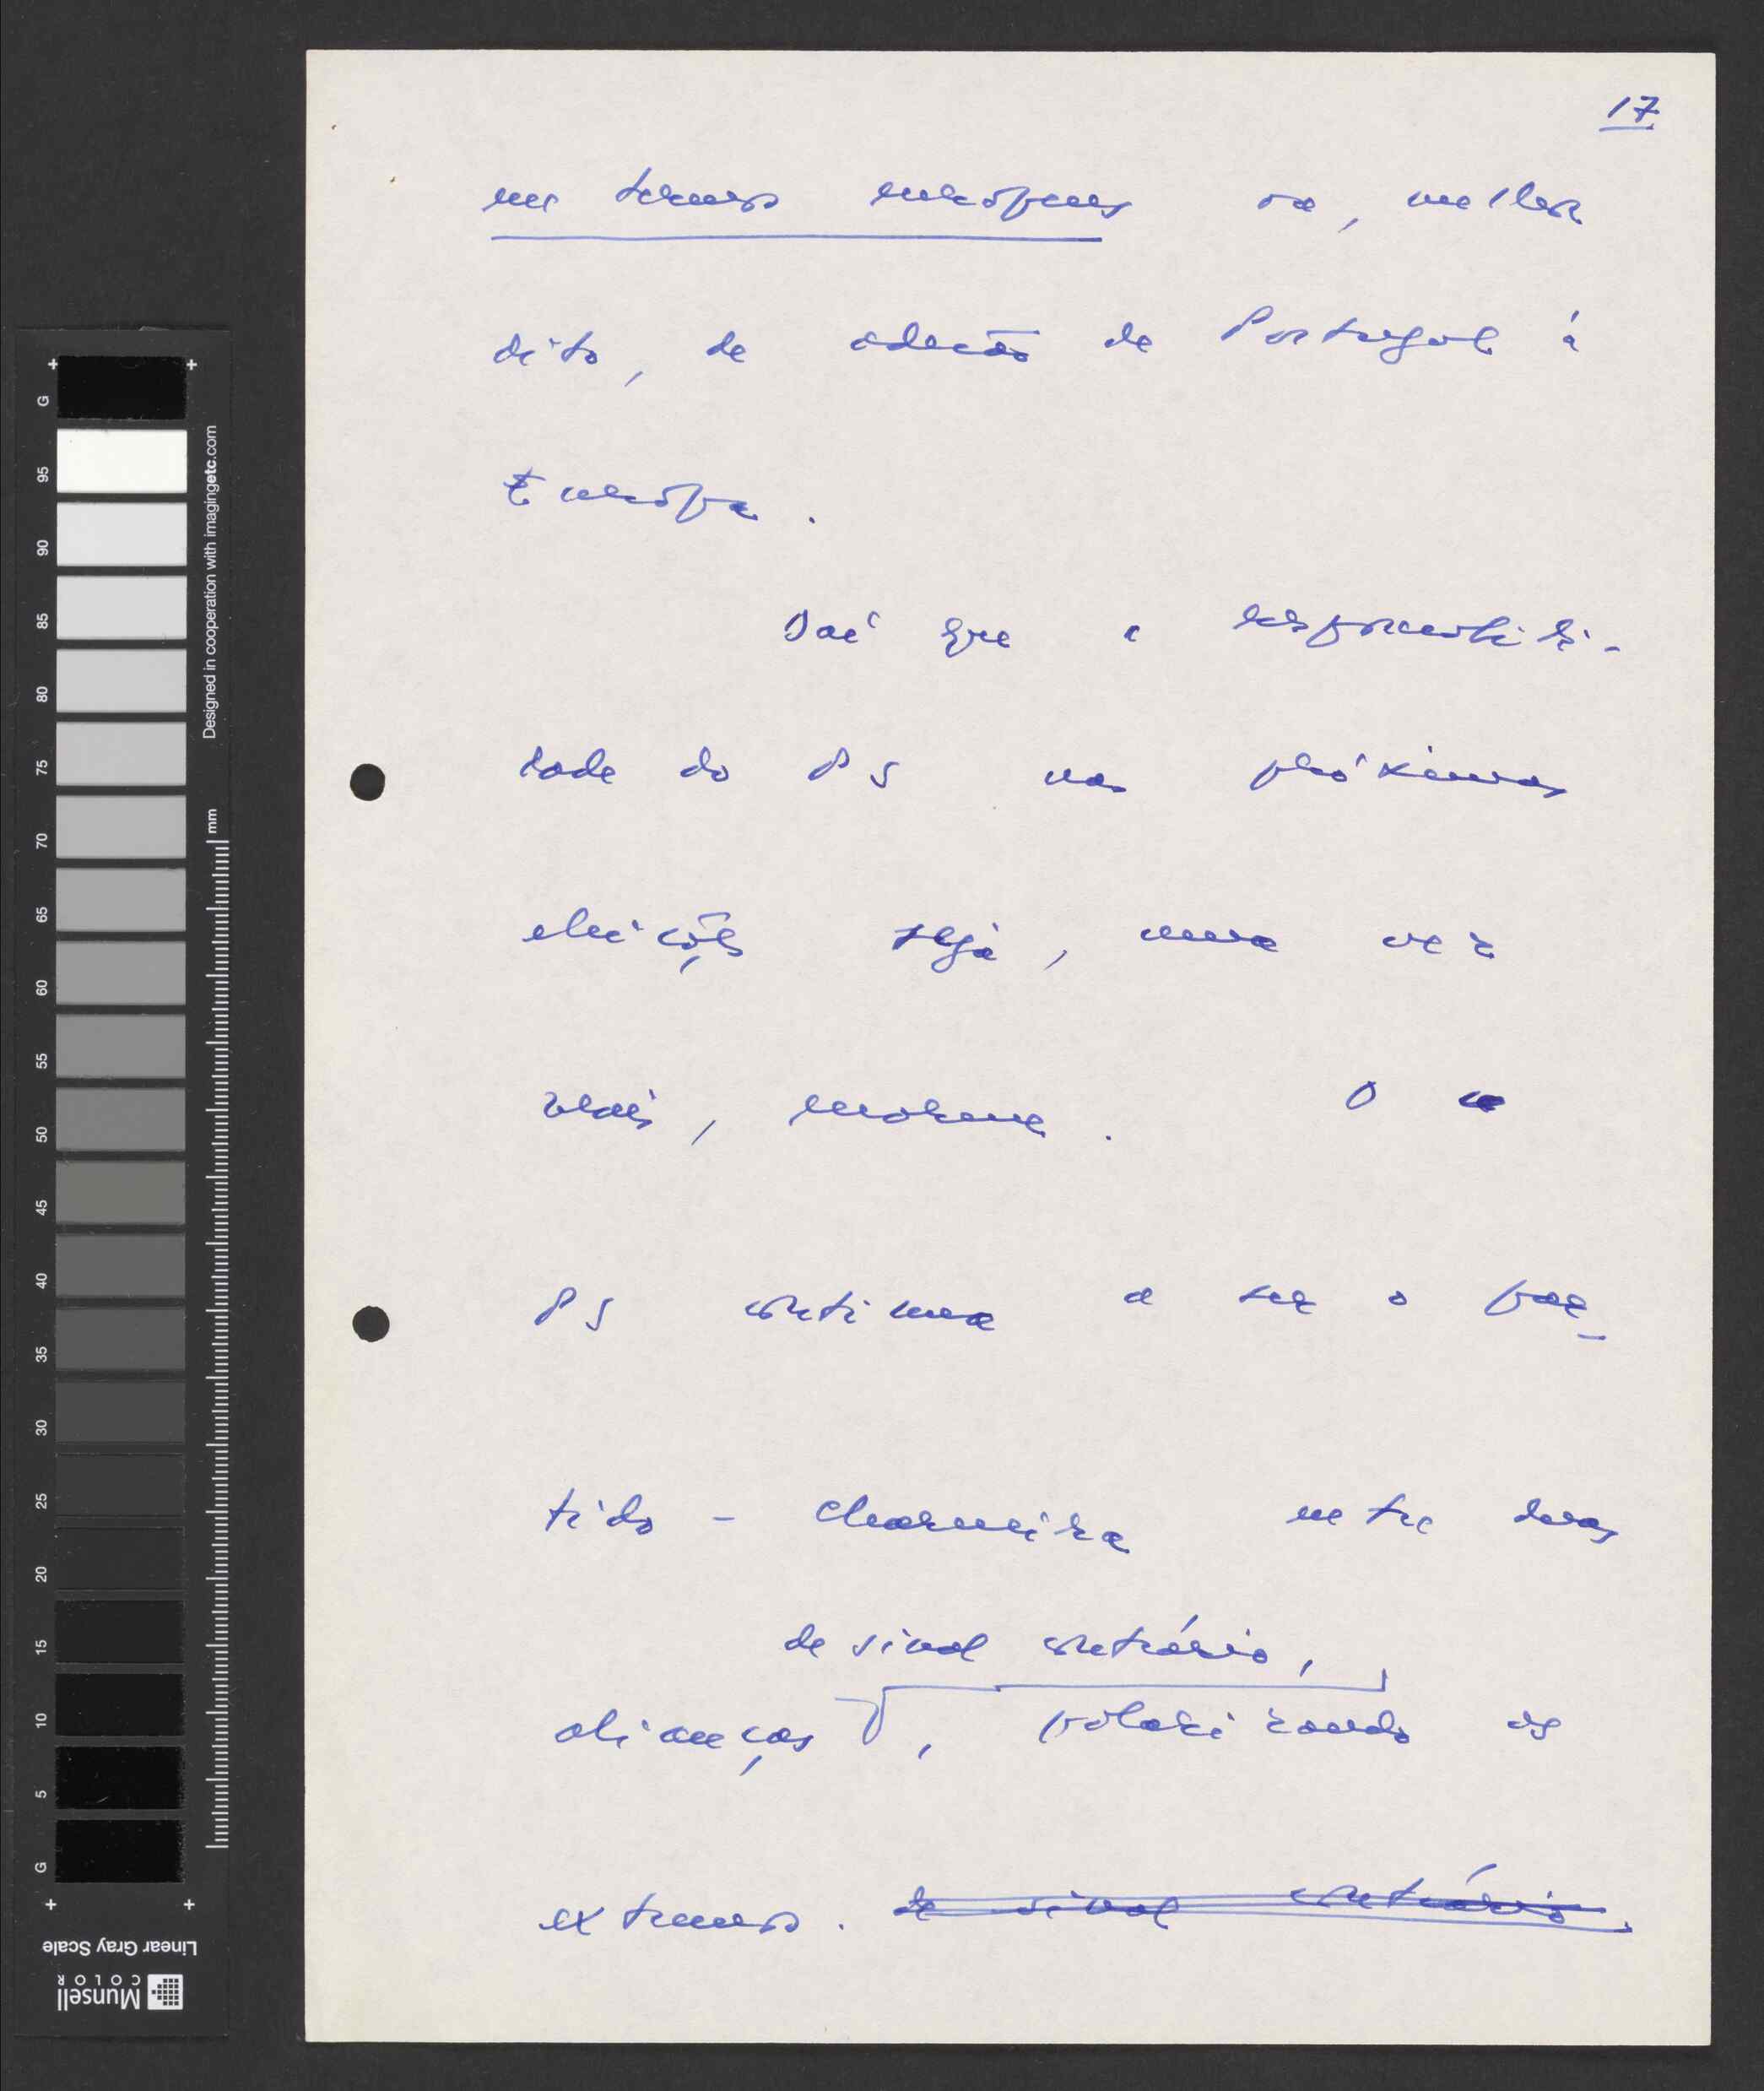 17
em termos europeus ou, melhor
dito, de adesão de Portugal à
Europa.
Daí que a responsabili-
dade do PS nas próximas
eleições seja, uma vez
mais, enorme. O
PS continua a ser o par-
tido - charneira entre duas
de sinal contrário,
alianças, polarizando os
extremos. de sinal contrário.
G
95
90
85
80
75
70
65
60
55
50
45
40
35
30
25
20
15
10
5
G
Designed in cooperation with imagingetc.com
mm
Linear Gray Scale
Munsell
COLOR